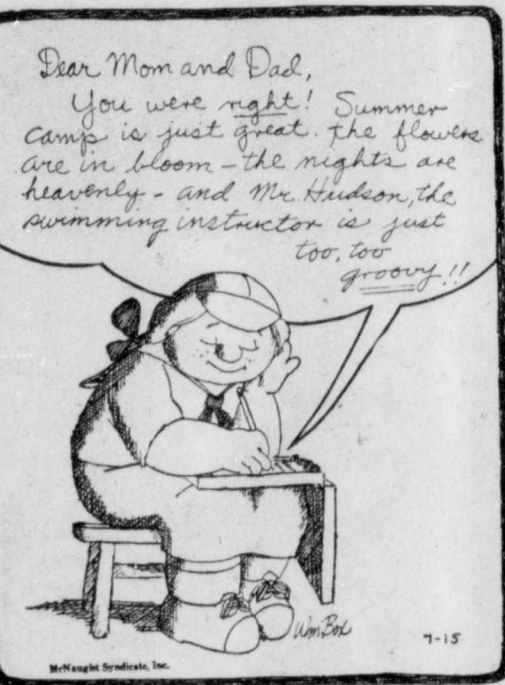 Dear Mom and Dad,
You were right! Summer
camp is just great. the flowers
are in bloom - the nights are
heavenly - and Mr. Hudson, the
swimming instructor is just
too, too
groovy!!
Wm Box
7-15
McNaught Syndicate, Inc.